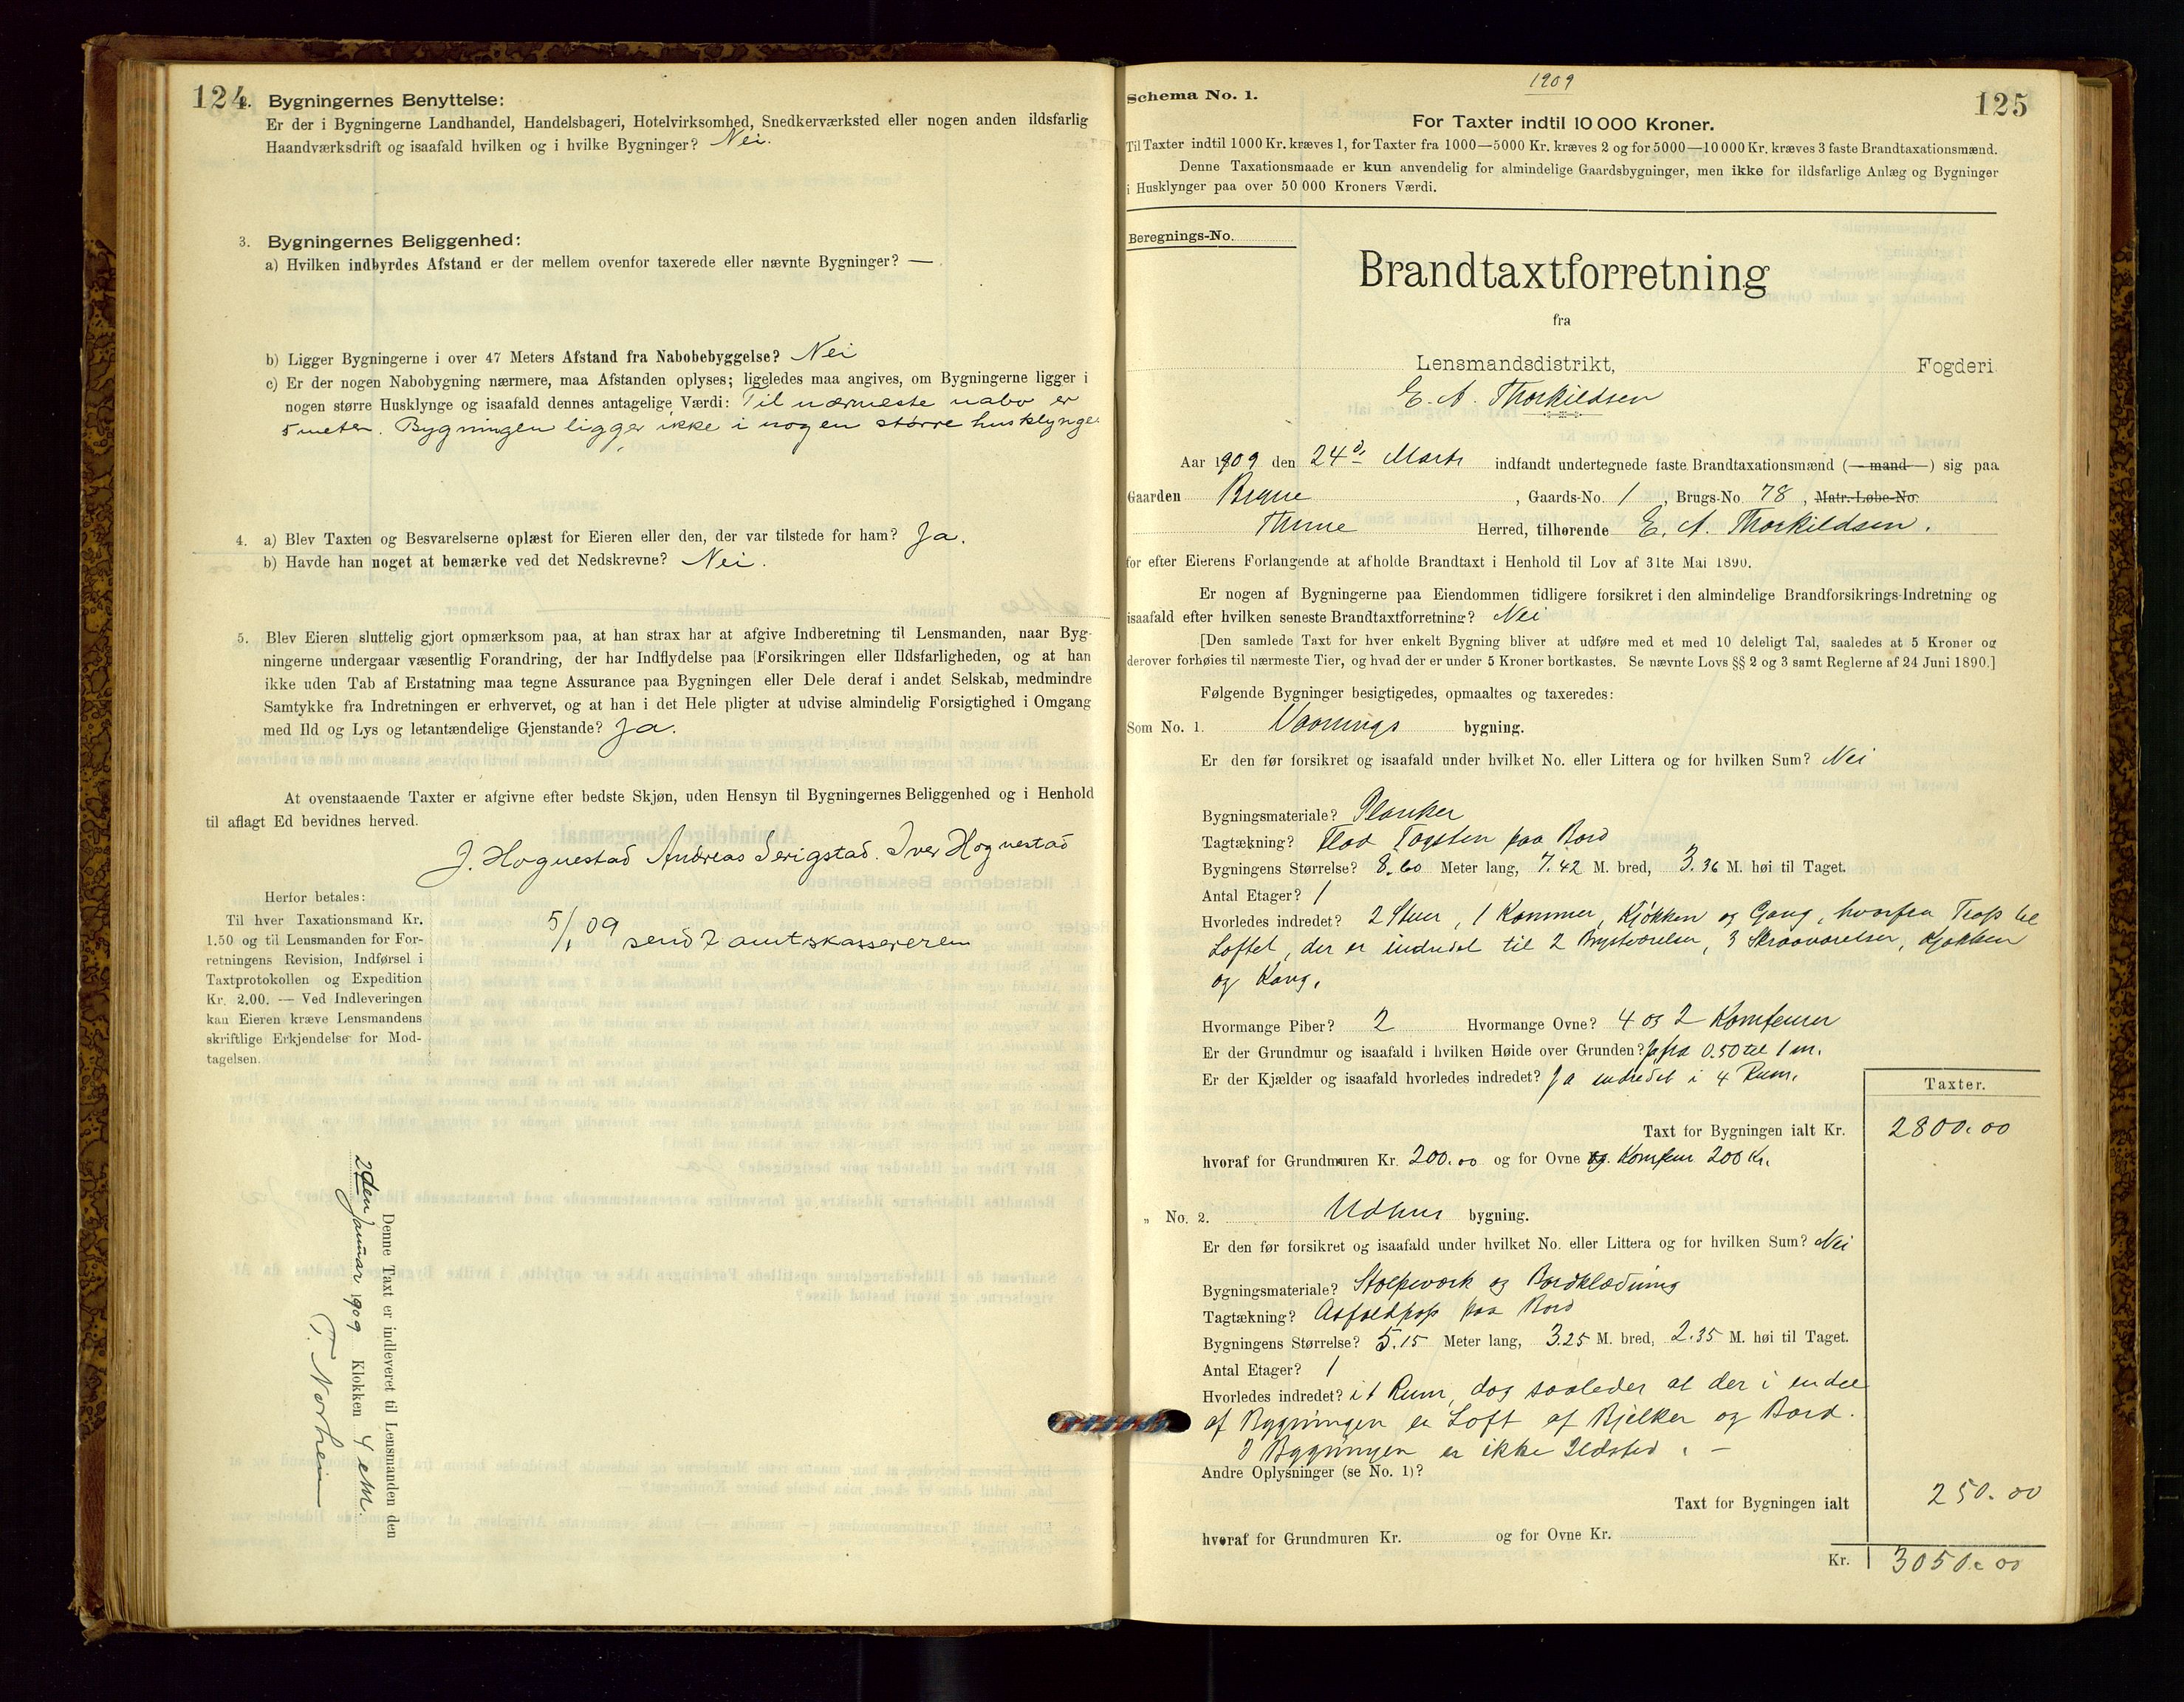 124
2. Bygningernes Benyttelse:
Er der i Bygningerne Landhandel, Handelsbageri, Hotelvirksomhed, Snedkerværksted eller nogen anden ildsfarlig
Haandværksdrift og isaafald hvilken og i hvilke Bygninger? Nei.
3. Bygningernes Beliggenhed:
a) Hvilken indbyrdes Afstand er der mellem ovenfor taxerede eller nævnte Bygninger? —
b) Ligger Bygningerne i over 47 Meters Afstand fra Nabobebyggelse? Nei
c) Er der nogen Nabobygning nærmere, maa Afstanden oplyses; ligeledes maa angives, om Bygningerne ligger i
nogen større Husklynge og isaafald dennes antagelige Værdi: Til nærmeste nabo er
5 meter. Bygningen ligger ikke i nogen større husklynge.
4. a) Blev Taxten og Besvarelserne oplæst for Eieren eller den, der var tilstede for ham? Ja.
b) Havde han noget at bemærke ved det Nedskrevne? Nei.
5. Blev Eieren sluttelig gjort opmærksom paa, at han strax har at afgive Indberetning til Lensmanden, naar Byg-
ningerne undergaar væsentlig Forandring, der har Indflydelse paa Forsikringen eller Ildsfarligheden, og at han
ikke uden Tab af Erstatning maa tegne Assurance paa Bygningen eller Dele deraf i andet Selskab, medmindre
Samtykke fra Indretningen er erhvervet, og at han i det Hele pligter at udvise almindelig Forsigtighed i Omgang
med Ild og Lys og letantændelige Gjenstande? Ja.
At ovenstaaende Taxter er afgivne efter bedste Skjøn, uden Hensyn til Bygningernes Beliggenhed og i Henhold
til aflagt Ed bevidnes herved.
J. Hognestad Andreas Serigstad. Iver Hognestad
Herfor betales:
Til hver Taxationsmand Kr.
1.50 og til Lensmanden for For-
retningens Revision, Indførsel i
Taxtprotokollen og Expedition
Kr. 2.00. — Ved Indleveringen
kan Eieren kræve Lensmandens
skriftlige Erkjendelse for Mod-
tagelsen.
5/1 09 sendt amtskassereren
Denne Taxt er indleveret til Lensmanden den
2den Januar 1909 Klokken 4 em.
T. Norheim
1909
125
Schema No. 1.
For Taxter indtil 10 000 Kroner.
Til Taxter indtil 1000 Kr. kræves 1, for Taxter fra 1000—5000 Kr. kræves 2 og for 5000—10 000 Kr. kræves 3 faste Brandtaxationsmænd.
Denne Taxationsmaade er kun anvendelig for almindelige Gaardsbygninger, men ikke for ildsfarlige Anlæg og Bygninger
i Husklynger paa over 50 000 Kroners Værdi.
Beregnings-No.
Brandtaxtforretning
fra
Lensmandsdistrikt, Fogderi
E. A. Thorkildsen
Aar 1909 den 24d. Marts indfandt undertegnede faste Brandtaxationsmænd (—mand—) sig paa
Gaarden Bryne, Gaards-No. 1, Brugs-No. 78, Matr.-Løbe-No.
Thime Herred, tilhørende E. A. Thorkildsen.
for efter Eierens Forlangende at afholde Brandtaxt i Henhold til Lov af 31te Mai 1890.
Er nogen af Bygningerne paa Eiendommen tidligere forsikret i den almindelige Brandforsikrings-Indretning og
isaafald efter hvilken seneste Brandtaxtforretning? Nei
[Den samlede Taxt for hver enkelt Bygning bliver at udføre med et med 10 deleligt Tal, saaledes at 5 Kroner og
derover forhøies til nærmeste Tier, og hvad der er under 5 Kroner bortkastes. Se nævnte Lovs §§ 2 og 3 samt Reglerne af 24 Juni 1890.]
Følgende Bygninger besigtigedes, opmaaltes og taxeredes:
Som No. 1. Vaanings bygning.
Er den før forsikret og isaafald under hvilket No. eller Littera og for hvilken Sum? Nei
Bygningsmateriale? Planker
Tagtækning? Flad Tagsten paa Bord
Bygningens Størrelse? 8.60 Meter lang, 7.42 M. bred, 3.36 M. høi til Taget.
Antal Etager? 1
Hvorledes indredet? 2 Stuer, 1 Kammer, Kjøkken og Gang, hvorfra Trap til
Loftet, der er indredet til 2 Brystværelser, 3 Skraaværelser, Kjøkken
og Gang.
Hvormange Piber? 2 Hvormange Ovne? 4 og 2 Komfeurer
Er der Grundmur og isaafald i hvilken Høide over Grunden? Ja fra 0.50 til 1 m.
Er der Kjælder og isaafald hvorledes indredet? Ja indredet i 4 Rum.
Taxter.
Taxt for Bygningen ialt Kr. 2800.00
hvoraf for Grundmuren Kr. 200.00 og for Ovne og Komfeur 200 Kr.
„ No. 2. Udhus bygning.
Er den før forsikret og isaafald under hvilket No. eller Littera og for hvilken Sum? Nei
Bygningsmateriale? Stolpeværk og Bordklædning
Tagtækning? Asfaldpap paa Bord
Bygningens Størrelse? 5.15 Meter lang, 3.25 M. bred, 2.35 M. høi til Taget.
Antal Etager? 1
Hvorledes indredet? i 1 Rum, dog saaledes at der i en del
af Bygningen er Loft af Bjelker og Bord.
I Bygningen er ikke Ildsted. —
Andre Oplysninger (se No. 1)?
Taxt for Bygningen ialt 250.00
hvoraf for Grundmuren Kr. og for Ovne Kr.
Kr. 3050.00